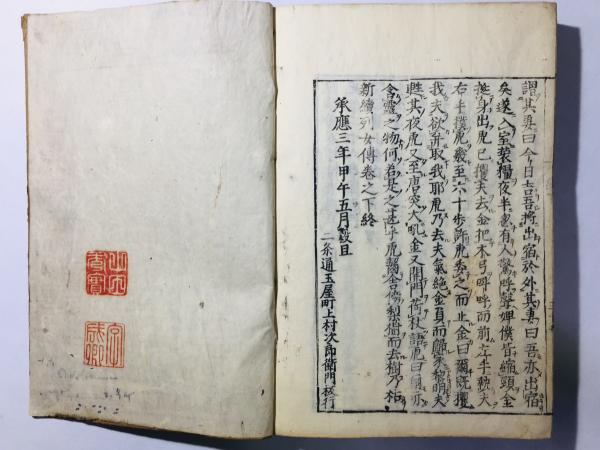 謂其妻曰今日吾將出宿於外其妻曰吾亦出宿
矣遂入室裝糧夜半也有人驚呼聲婢僕皆縮頭金
挺身出虎已攫夫去金把木弓呼呼而前左手執夫
右手撲虎幾至六十步許虎委之而止金曰爾既攫
我夫欲并取我耶虎乃去夫氣絶金負而歸家黎明夫
甦其夜虎又至唐突大吼金又開門荷杖語虎曰爾亦
含靈之物何若是之甚乎虎齧舍傍梨樹而去樹乃枯
新續列女傳卷之下終
承應三年甲午五月穀旦
二条通玉屋町上村次郎衛門板行